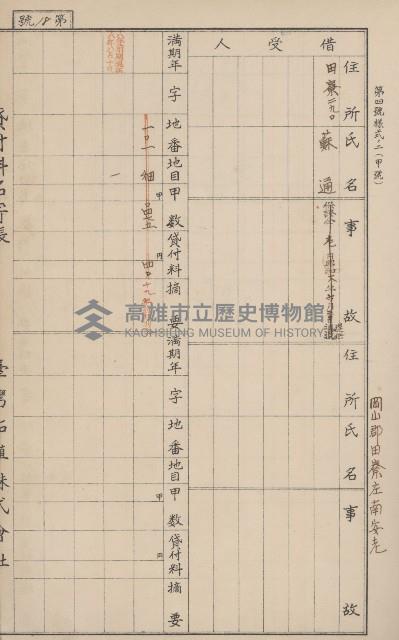 第四號樣式ノ二(甲號)
岡山郡田寮庄南安老
第 18 號
借受人
住所氏名
事故
田寮二九〇
蘇通
住所氏名
事故
滿期年
字
地番
地目
甲数
貸付料
摘要
一〇一
畑
甲
円
滿期年
字
地番
地目
甲数
貸付料
摘要
甲
円
貸付料名寄帳
臺灣拓殖株式會社
高雄市立歷史博物館
KAOHSIUNG MUSEUM OF HISTORY